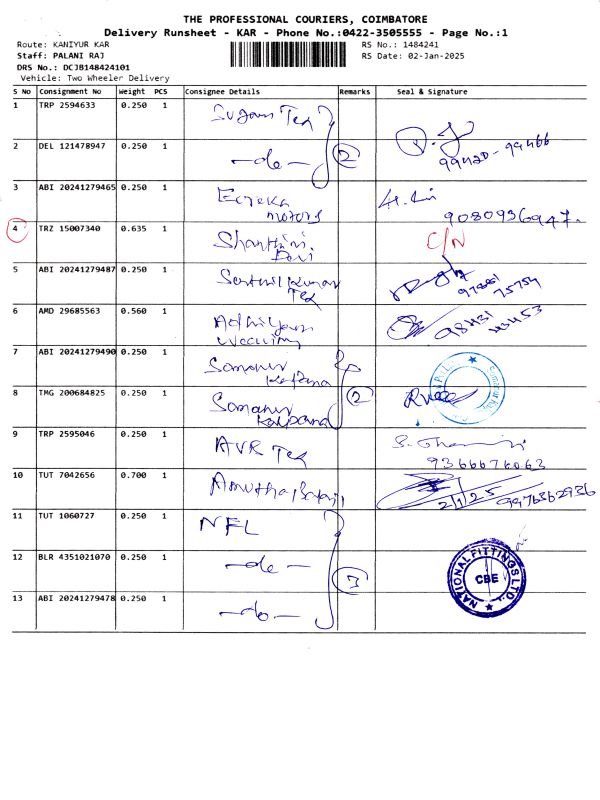 THE PROFESSIONAL COURIERS, COIMBATORE
Delivery Runsheet - KAR - Phone No.:0422-3505555 - Page No.:1
Route: KANIYUR KAR
RS No.: 1484241
Staff: PALANI RAJ
RS Date: 02-Jan-2025
DRS No.: DCJB148424101
Vehicle: Two Wheeler Delivery
S No Consignment No Weight PCS Consignee Details Remarks Seal & Signature
1 TRP 2594633 0.250 1 Sugam Tex
2 DEL 121478947 0.250 1 -do- 2 99420-99466
3 ABI 20241279465 0.250 1 Eureka
motors 9080936947.
4 TRZ 15007340 0.635 1 Shanthini
Devi C/N
5 ABI 20241279487 0.250 1 Senthil Kumar
Tex 97881 75754
6 AMD 29685563 0.560 1 Adhiyam
weaving 98431 43453
7 ABI 20241279490 0.250 1 Somanur
Kalpana
8 TMG 200684825 0.250 1 Somanur
Kalpana 2
9 TRP 2595046 0.250 1 AVR Tex
9366676063
10 TUT 7042656 0.700 1 Amutha Balaji 2/1/25 9976362936
11 TUT 1060727 0.250 1 NFL
12 BLR 4351021070 0.250 1 -do- 3
NATIONAL FITTINGS LTD.
CBE
13 ABI 20241279478 0.250 1 -do-